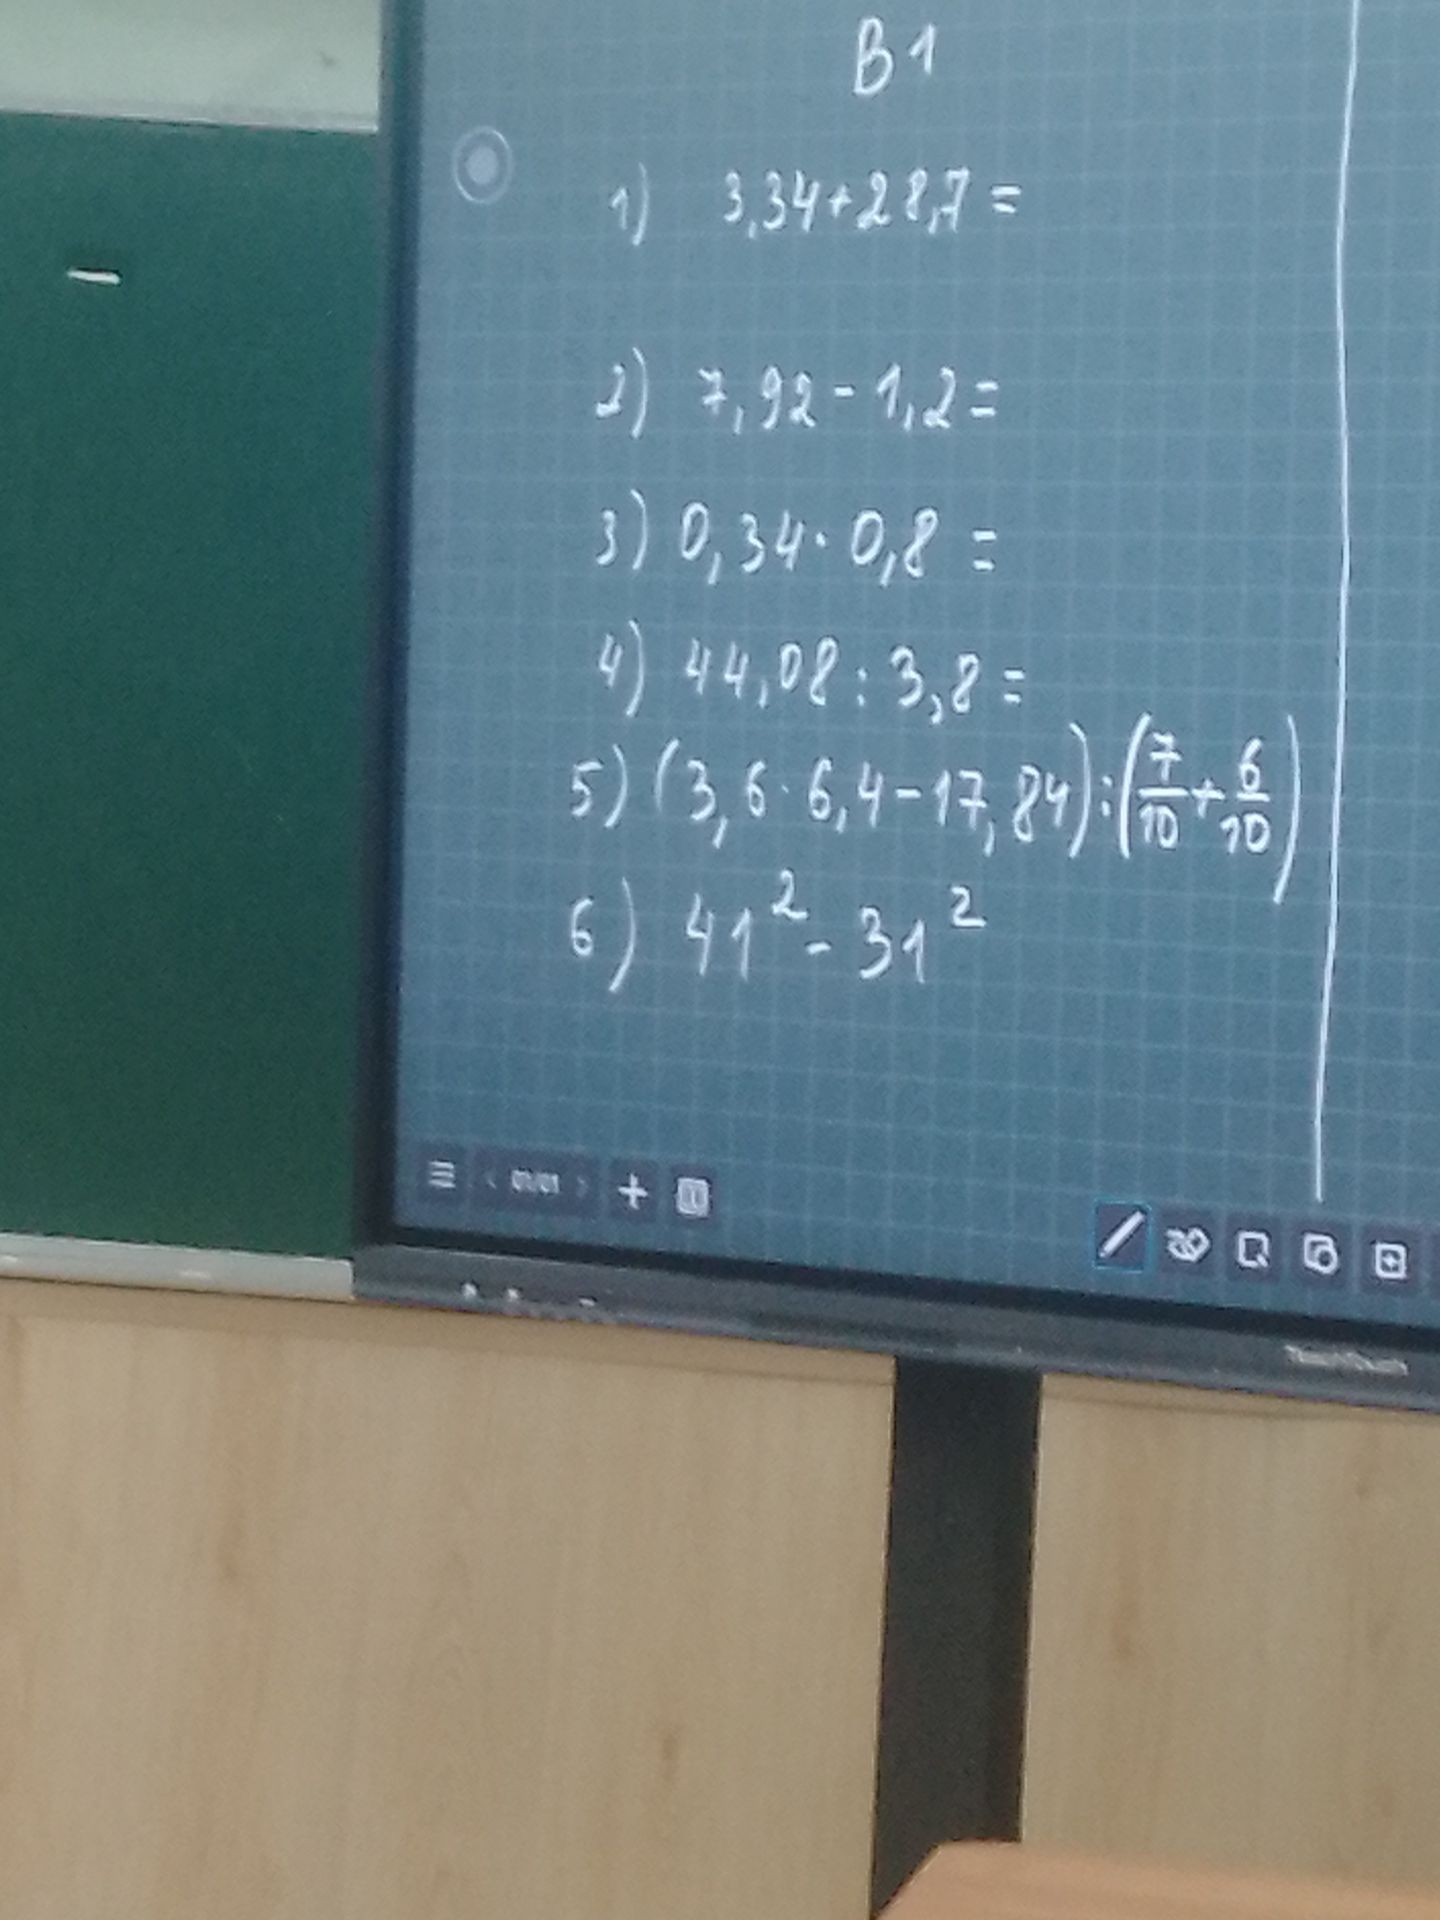 В1
1) 3,34+28,7=
2) 7,92-1,2=
3) 0,34·0,8=
4) 44,08:3,8=
5) (3,6·6,4-17,84):(7/10+6/10)
6) 41²-31²
01/01